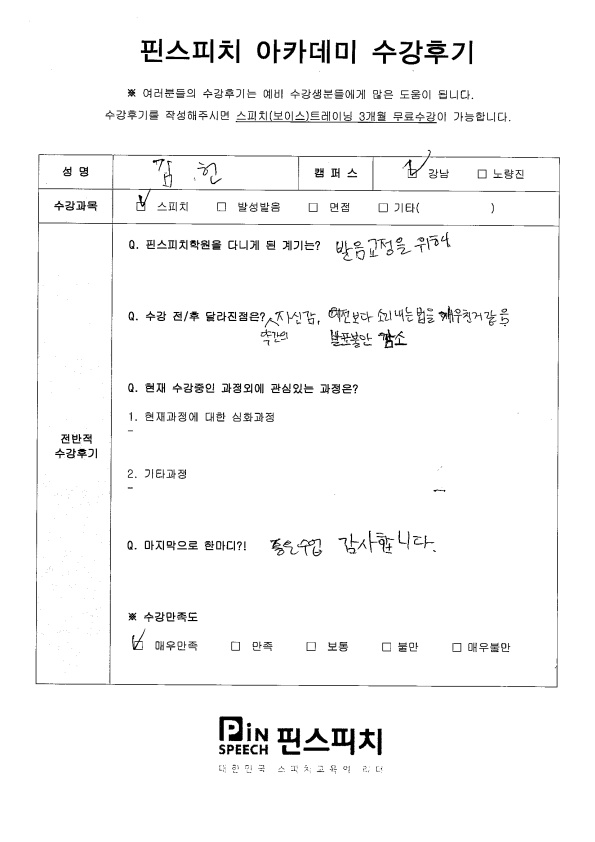 핀스피치 아카데미 수강후기
※ 여러분들의 수강후기는 예비 수강생분들에게 많은 도움이 됩니다.
수강후기를 작성해주시면 스피치(보이스)트레이닝 3개월 무료수강이 가능합니다.
성 명 김 헌 캠 퍼 스 ☑ 강남 □ 노량진
수강과목 ☑ 스피치 □ 발성발음 □ 면접 □ 기타( )
Q. 핀스피치학원을 다니게 된 계기는? 발음교정을 위해
Q. 수강 전/후 달라진점은? 자신감, 예전보다 소리내는법을 깨우친거 같음
약간의 발표불안 감소
Q. 현재 수강중인 과정외에 관심있는 과정은?
1. 현재과정에 대한 심화과정
-
전반적
수강후기
2. 기타과정
-
Q. 마지막으로 한마디?! 좋은수업 감사합니다.
※ 수강만족도
☑ 매우만족 □ 만족 □ 보통 □ 불만 □ 매우불만
PiN
SPEECH 핀스피치
대한민국 스피치교육의 리더